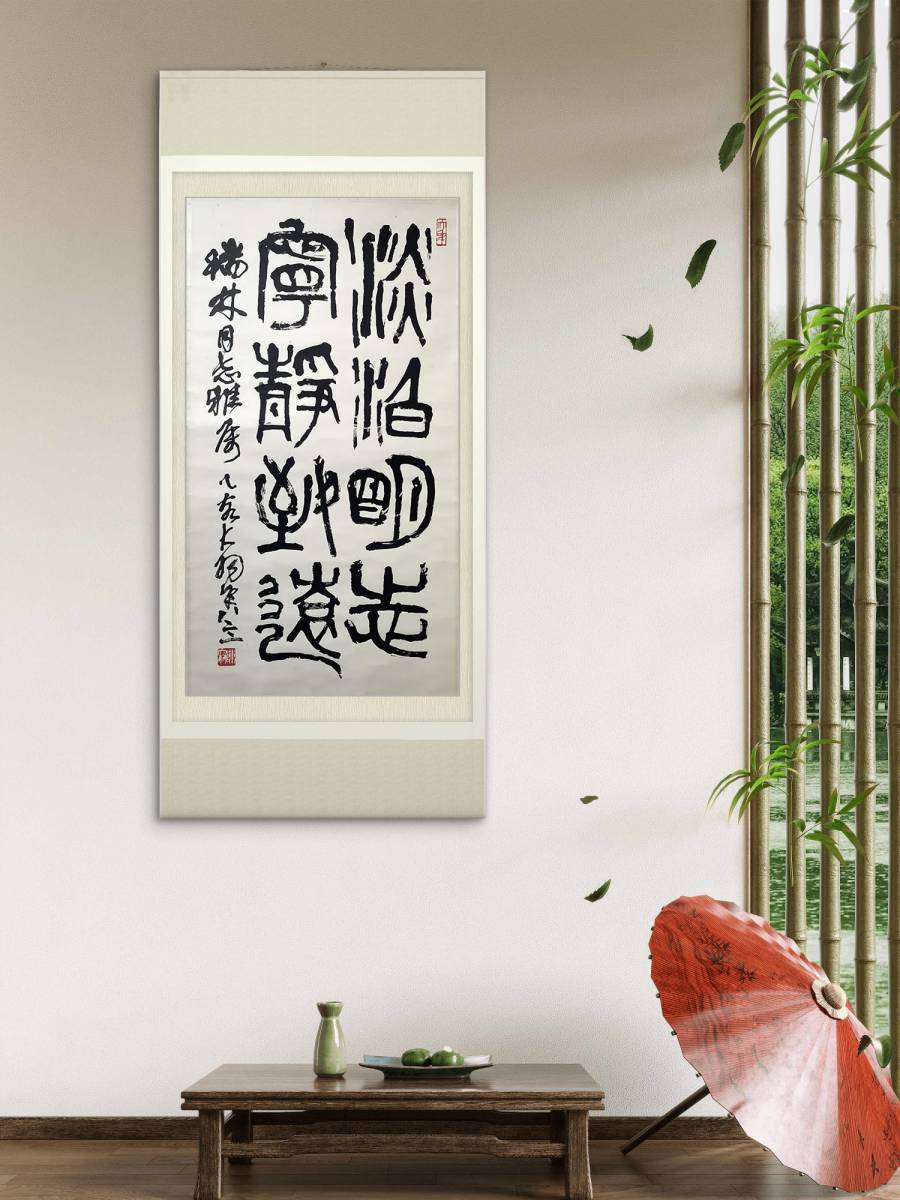 淡泊明志
寧靜致遠
瑞林同志雅屬